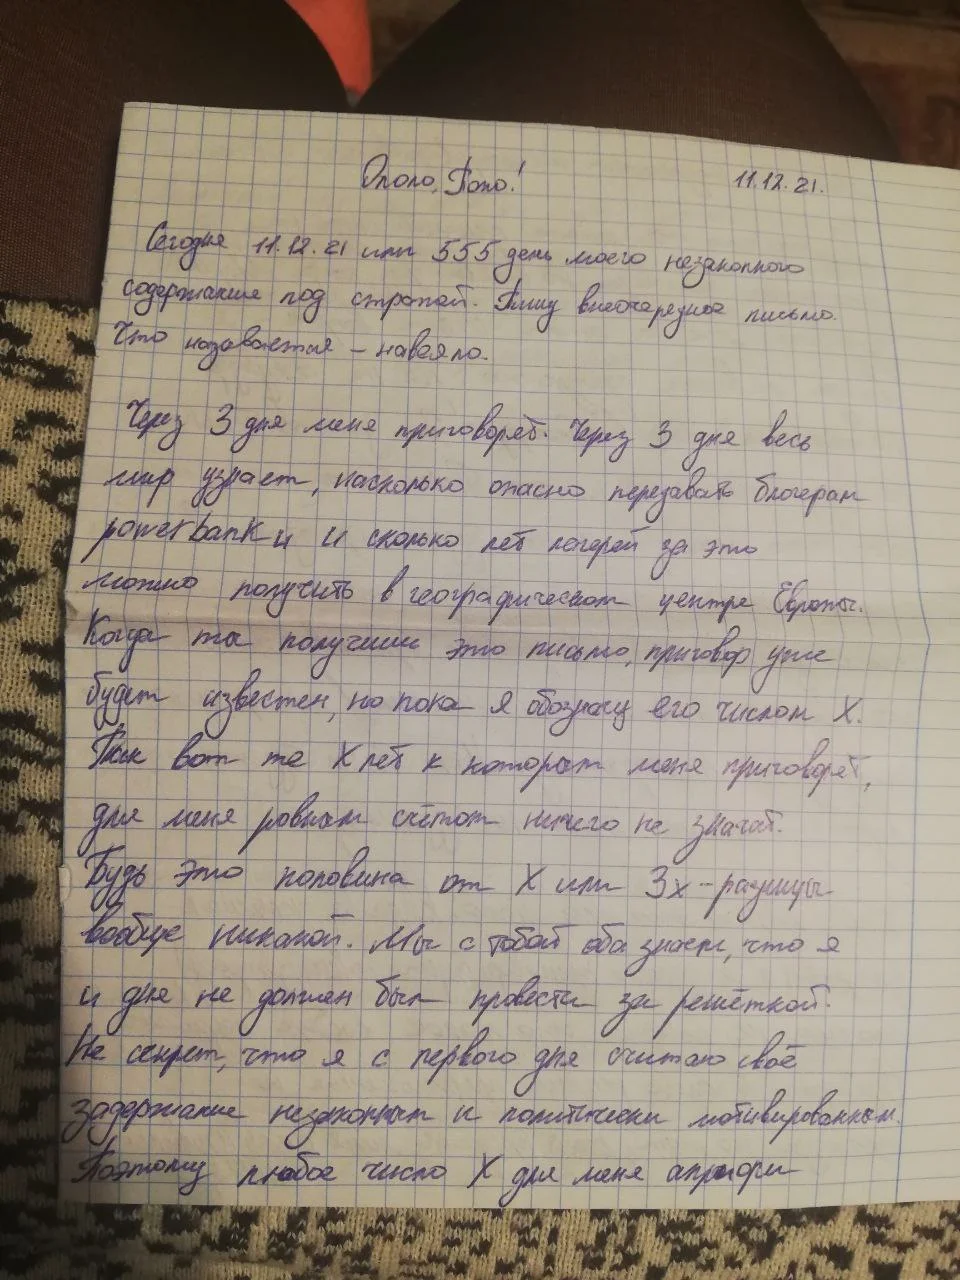 11.12.21.
Сегодня 11.12.21 или 555 день моего незаконного
содержание под стражей. Пишу внеочередное письмо.
Что называется – навеяло.
Через 3 дня меня приговорят. Через 3 дня весь
мир узнает, насколько опасно передавать блогерам
powerbank и и сколько лет лагерей за это
можно получить в географическом центре Европы.
Когда ты получишь это письмо, приговор уже
будет известен, но пока я обозначу его числом X.
Так вот те X лет к которым меня приговорят,
для меня ровным счётом ничего не значат.
Будь это половина от X или 3x – разницы
вообще никакой. Мы с тобой оба знаем, что я
и дня не должен был провести за решёткой.
Не секрет, что я с первого дня считаю своё
задержание незаконным и политически мотивированным.
Поэтому любое число X для меня априори